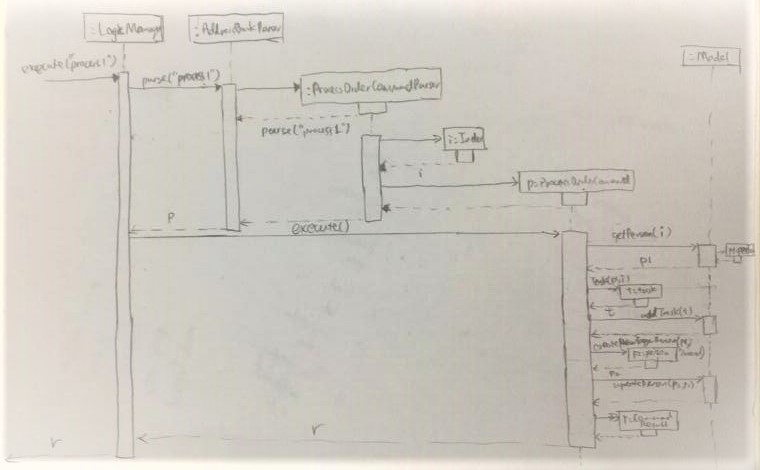 :LogicManager
:AddressBookParser
:Model
execute("process 1")
parse("process 1")
:ProcessOrderCommandParser
parse("process 1")
i:Index
i
p:ProcessOrderCommand
P
execute()
getPerson(i)
p1
t:task
t
addTask(t)
p2:person
p2
updatePerson(p1,p2)
r:Command
Result
r
r